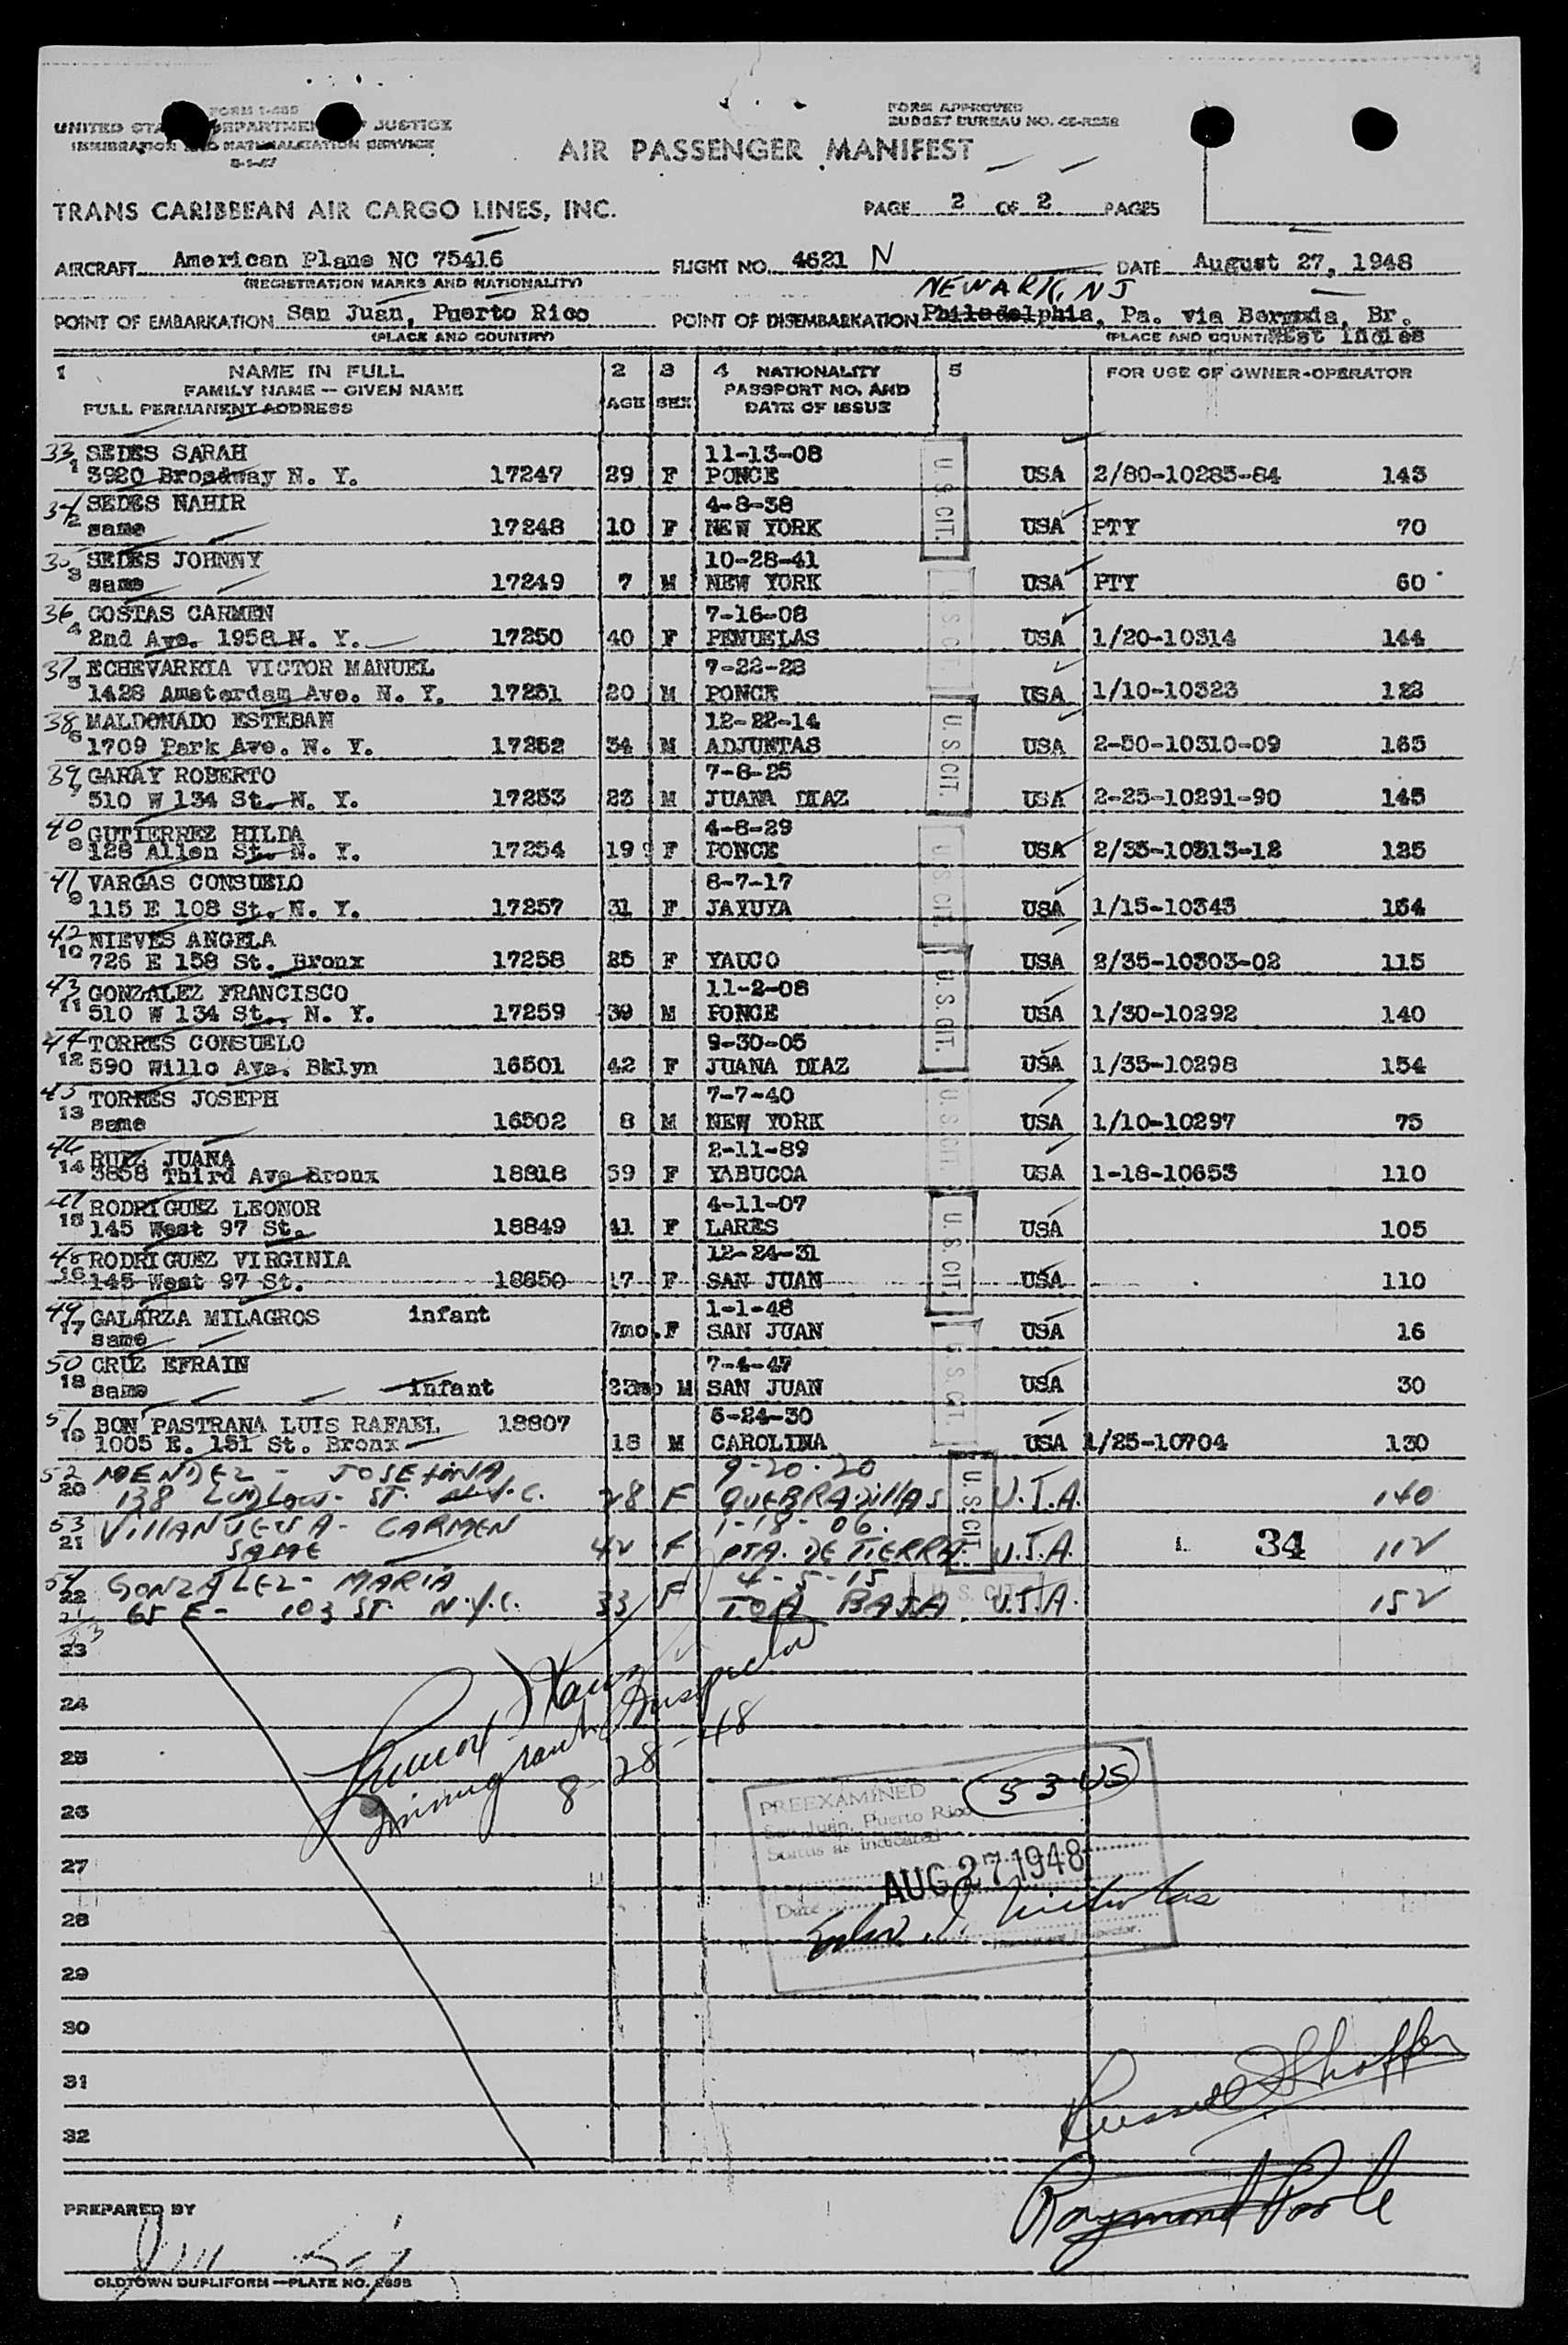 FORM I-466
UNITED STATES DEPARTMENT OF JUSTICE
IMMIGRATION AND NATURALIZATION SERVICE
FORM APPROVED
BUDGET BUREAU NO.
AIR PASSENGER MANIFEST
TRANS CARIBBEAN AIR CARGO LINES, INC.
PAGE 2 OF 2 PAGES
AIRCRAFT American Plane NC 75416 FLIGHT NO. 4621 N DATE August 27, 1948
(REGISTRATION MARKS AND NATIONALITY)
NEWARK, NJ
POINT OF EMBARKATION San Juan, Puerto Rico POINT OF DISEMBARKATION Philadelphia, Pa. via Bermuda, Br.
(PLACE AND COUNTRY) (PLACE AND COUNTRY) West Indies
1 NAME IN FULL 2 3 4 NATIONALITY 5 FOR USE OF OWNER-OPERATOR
FAMILY NAME — GIVEN NAME AGE SEX PASSPORT NO. AND
FULL PERMANENT ADDRESS DATE OF ISSUE
33 SEDES SARAH 11-13-08
1 3920 Broadway N. Y. 17247 29 F PONCE USA 2/80-10285-84 143
34 SEDES NAHIR 4-8-38
2 same 17248 10 F NEW YORK USA PTY 70
35 SEDES JOHNNY 10-28-41
3 same 17249 7 M NEW YORK USA PTY 60
36 COSTAS CARMEN 7-16-08
4 2nd Ave. 1958 N. Y. 17250 40 F PENUELAS USA 1/20-10314 144
37 ECHEVARRIA VICTOR MANUEL 7-22-28
5 1428 Amsterdam Ave. N. Y. 17251 20 M PONCE USA 1/10-10323 123
38 MALDONADO ESTEBAN 12-22-14
6 1709 Park Ave. N. Y. 17252 34 M ADJUNTAS USA 2-50-10310-09 165
39 GARAY ROBERTO 7-8-25
7 510 W 134 St. N. Y. 17253 23 M JUANA DIAZ USA 2-25-10291-90 145
40 GUTIERREZ HILDA 4-8-29
8 128 Allen St. N. Y. 17254 19 F PONCE USA 2/35-10313-12 125
41 VARGAS CONSUELO 8-7-17
9 115 E 108 St. N. Y. 17257 31 F JAYUYA USA 1/15-10343 134
42 NIEVES ANGELA
10 726 E 158 St. Bronx 17258 25 F YAUCO USA 2/35-10303-02 115
43 GONZALEZ FRANCISCO 11-2-08
11 510 W 134 St. N. Y. 17259 39 M PONCE USA 1/30-10292 140
44 TORRES CONSUELO 9-30-05
12 590 Willo Ave. Bklyn 16501 42 F JUANA DIAZ USA 1/35-10298 154
45 TORRES JOSEPH 7-7-40
13 same 16502 8 M NEW YORK USA 1/10-10297 75
46 RUIZ JUANA 2-11-89
14 3858 Third Ave Bronx 18818 59 F YABUCOA USA 1-18-10653 110
47 RODRIGUEZ LEONOR 4-11-07
15 145 West 97 St. 18849 41 F LARES USA 105
48 RODRIGUEZ VIRGINIA 12-24-31
16 145 West 97 St. 18850 17 F SAN JUAN USA 110
49 GALARZA MILAGROS infant 1-1-48
17 same 7mo. F SAN JUAN USA 16
50 CRUZ EFRAIN 7-4-47
18 same infant M SAN JUAN USA 30
51 BON PASTRANA LUIS RAFAEL 18807 5-24-30
19 1005 E. 151 St. Bronx 18 M CAROLINA USA 1/25-10704 130
52 MENDEZ - JOSEFINA 9-20-20
20 138 LUDLOW ST. N.Y.C. 28 F QUEBRADILLAS U.S.A. 140
53 VILLANUEVA - CARMEN 1-18-06.
21 SAME 42 F PTA. DE TIERRA U.S.A. 34 112
54 GONZALEZ - MARIA 4-5-15
22 65 E- 103 ST. N.Y.C. 33 F TOA BAJA U.S.A. 152
U. S. CIT.
U. S. CIT.
U. S. CIT.
U. S. CIT.
U. S. CIT.
U. S. CIT.
U. S. CIT.
U. S. CIT.
U. S. CIT.
U. S. CIT.
23
24
25
26
27
28
29
30
31
32
Immigrant Inspector
8-28-48
53 US
PREEXAMINED
San Juan, Puerto Rico
Status as indicated
Date AUG 27 1948
Immigrant Inspector.
Russell Shaffer
Raymond Poole
PREPARED BY
OLDTOWN DUPLIFORM—PLATE NO.